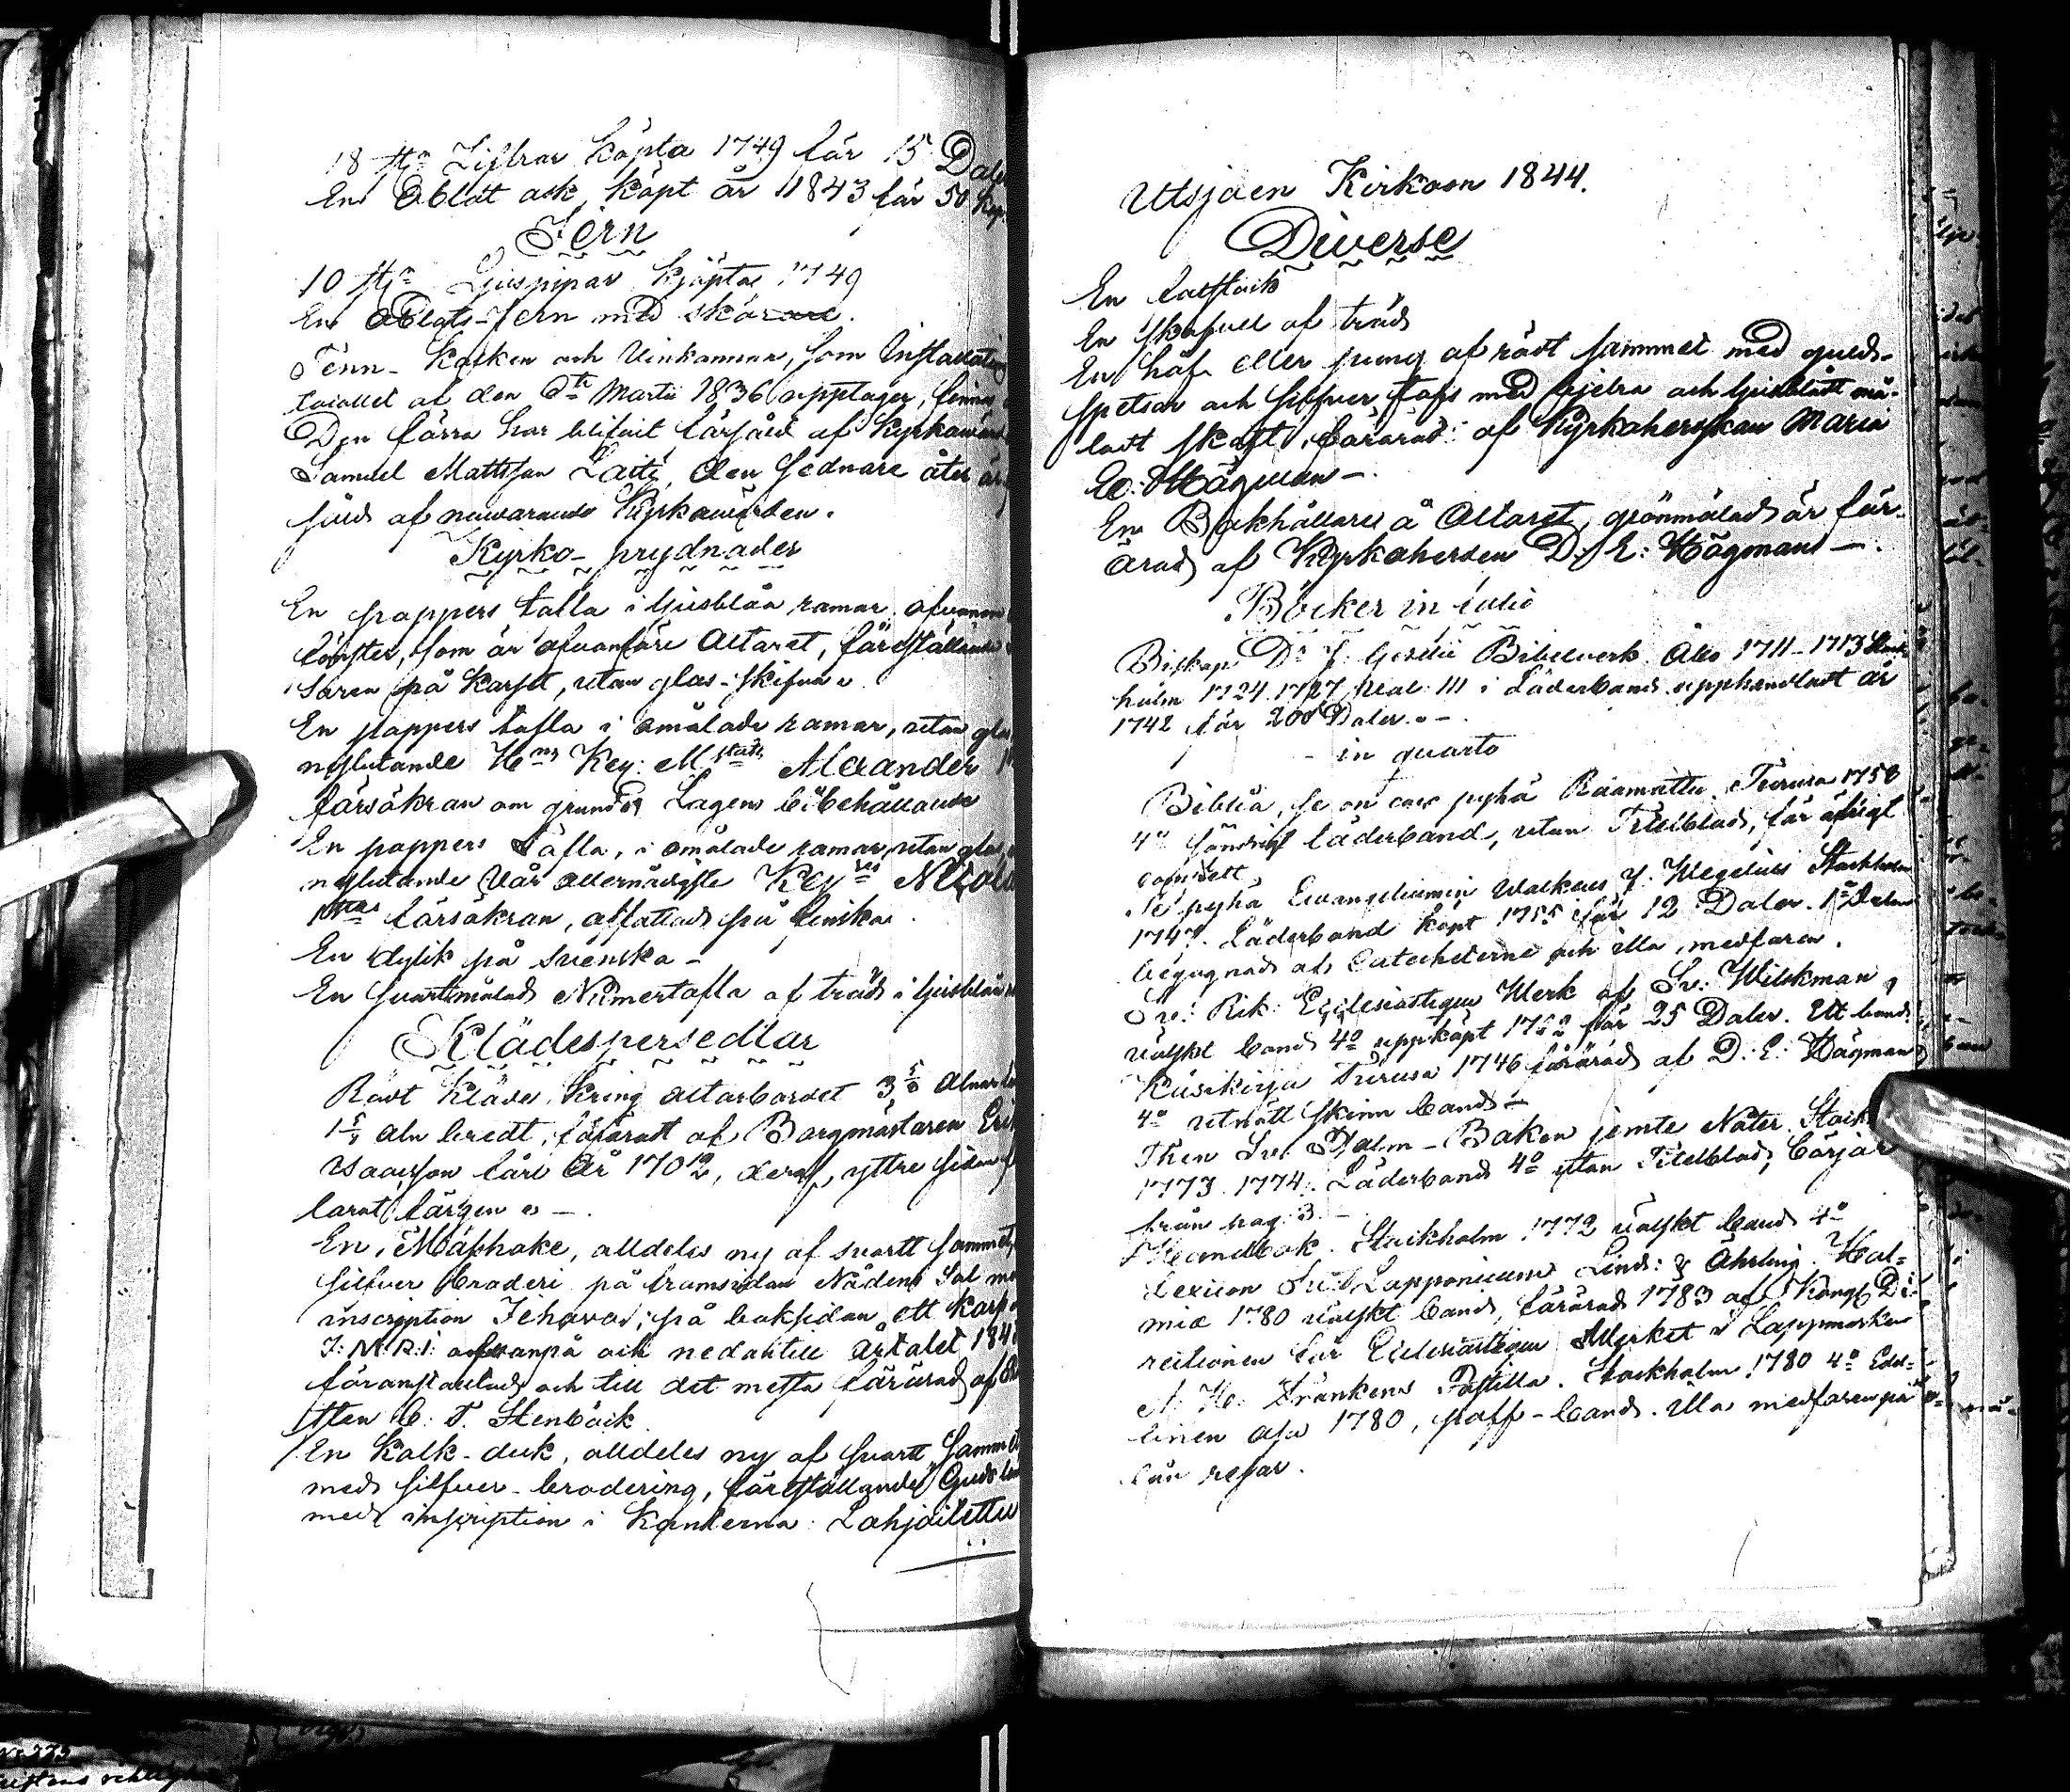 18 st: Liftrar köpta 1749 för 15 Dal
En Oblat ask, köpt år 1843 för 50 kop.
Jern
10 st: Ljuspipar kjöpta 1749
En Oblats-Jern med skärare.
Tenn-Kalken och Vinkannan, som
af den 6te Martii 1836 upptager, finnas
Den förra har blifvit försåld af Kyrkovärd
Samuel Mattsson Laiti, den sednare åter är
såld af nuvarande Kyrkovärden.
Kyrko-prydnader
En pappers tafla i ljusblåa ramar, ofvanom
fönster, som är ofvanföre Altaret, föreställande
på Korset, utan glas-skifva
En pappers tafla i omålade ramar, utan glas
neslutande Hans Kej: M:stäts Alexander
försäkran om grund Lagens bibehållande
En pappers Tafla, i omålade ramar utan glas
neslutande Vår allernådigste Kej
försäkran, affattad på finska
En dylik på svenska -
En svartmålad Numertafla af träd i ljusblåa
Klädespersedlar
Rödt Kläde kring altarbordet 3 alnar
aln bredt, förärat af Borgmästaren Erik
Isacsson före År 1702, deraf yttre sidan
lorat färgen -
En Mässhake, alldeles ny af svartt sammet,
silfver broderi på framsidan Nådens Sol med
inscription Jehova; på baksidan ett kors
I.N.R.I. ofvanpå och nedantill årtalet 184
föranstaltad och till det mesta förärad af
C: F. Stenbäck
En Kalk-duk, alldeles ny af svartt Samme
med silfver-brodering, föreställande Guds
med inscription i Kanterna: Lahjoitettu
Utsjoen Kirkoon 1844.
Diverse
En
En skofvel af träd
En håf eller pung af rödt sammet med guld-
spetsar och silfver tofs med bjelra och ljusblått må-
ladt skaft, förärad af Kyrkoherskan Maria
El: Högman -.
En Bokhållare å Altaret, grönmålad är för-
ärad af Kyrkoherden D: E: Högman -.
Böcker in folio
Biskop Dr J: Gezelii Bibelverk. Åbo 1711-1713 Stock-
holm 1724. 1727, Vol: III i Läderband upphandladt år
1742 för 200 Daler. -
in quarto
Biblia, se on coco pyhä Raamattu. Turusa 1758
4o söndrigt läderband, utan Titelblad, för öfrigt
complett
Se pyhä Ewangeliumin Walkeus J. Wegelius Stockholm
1747. Läderband köpt 1755 för 12 Daler.
begagnad af Catecheterne och illa medfaren.
Sv: Rik: Ecclesiastique Werk af Sv: Wilskman,
välskt band 4o uppköpt 1782 för 25 Daler. Ett band.
Käsikirja Turusa 1746 förärad af D: E: Högman
4o utnött skinn band -
Then Sv: Psalm-Boken jemte Noter. Stock
1773. 1774. Läderband 4o utan Titelblad, börjar
från pag: 3. -
Handbok. Stockholm 1772 välskt band 4o
Lexicon Sv: Lapponicum Lind: & Öhrling. Hol-
miæ 1780 välskt band, förärad 1783 af Kongl. Di-
rectionen för Ecclesiastique Werket i Lappmarken
A. H. Frankens Postilla. Stockholm 1780 4o
1780, papp-band. Illa medfaren på
resor.